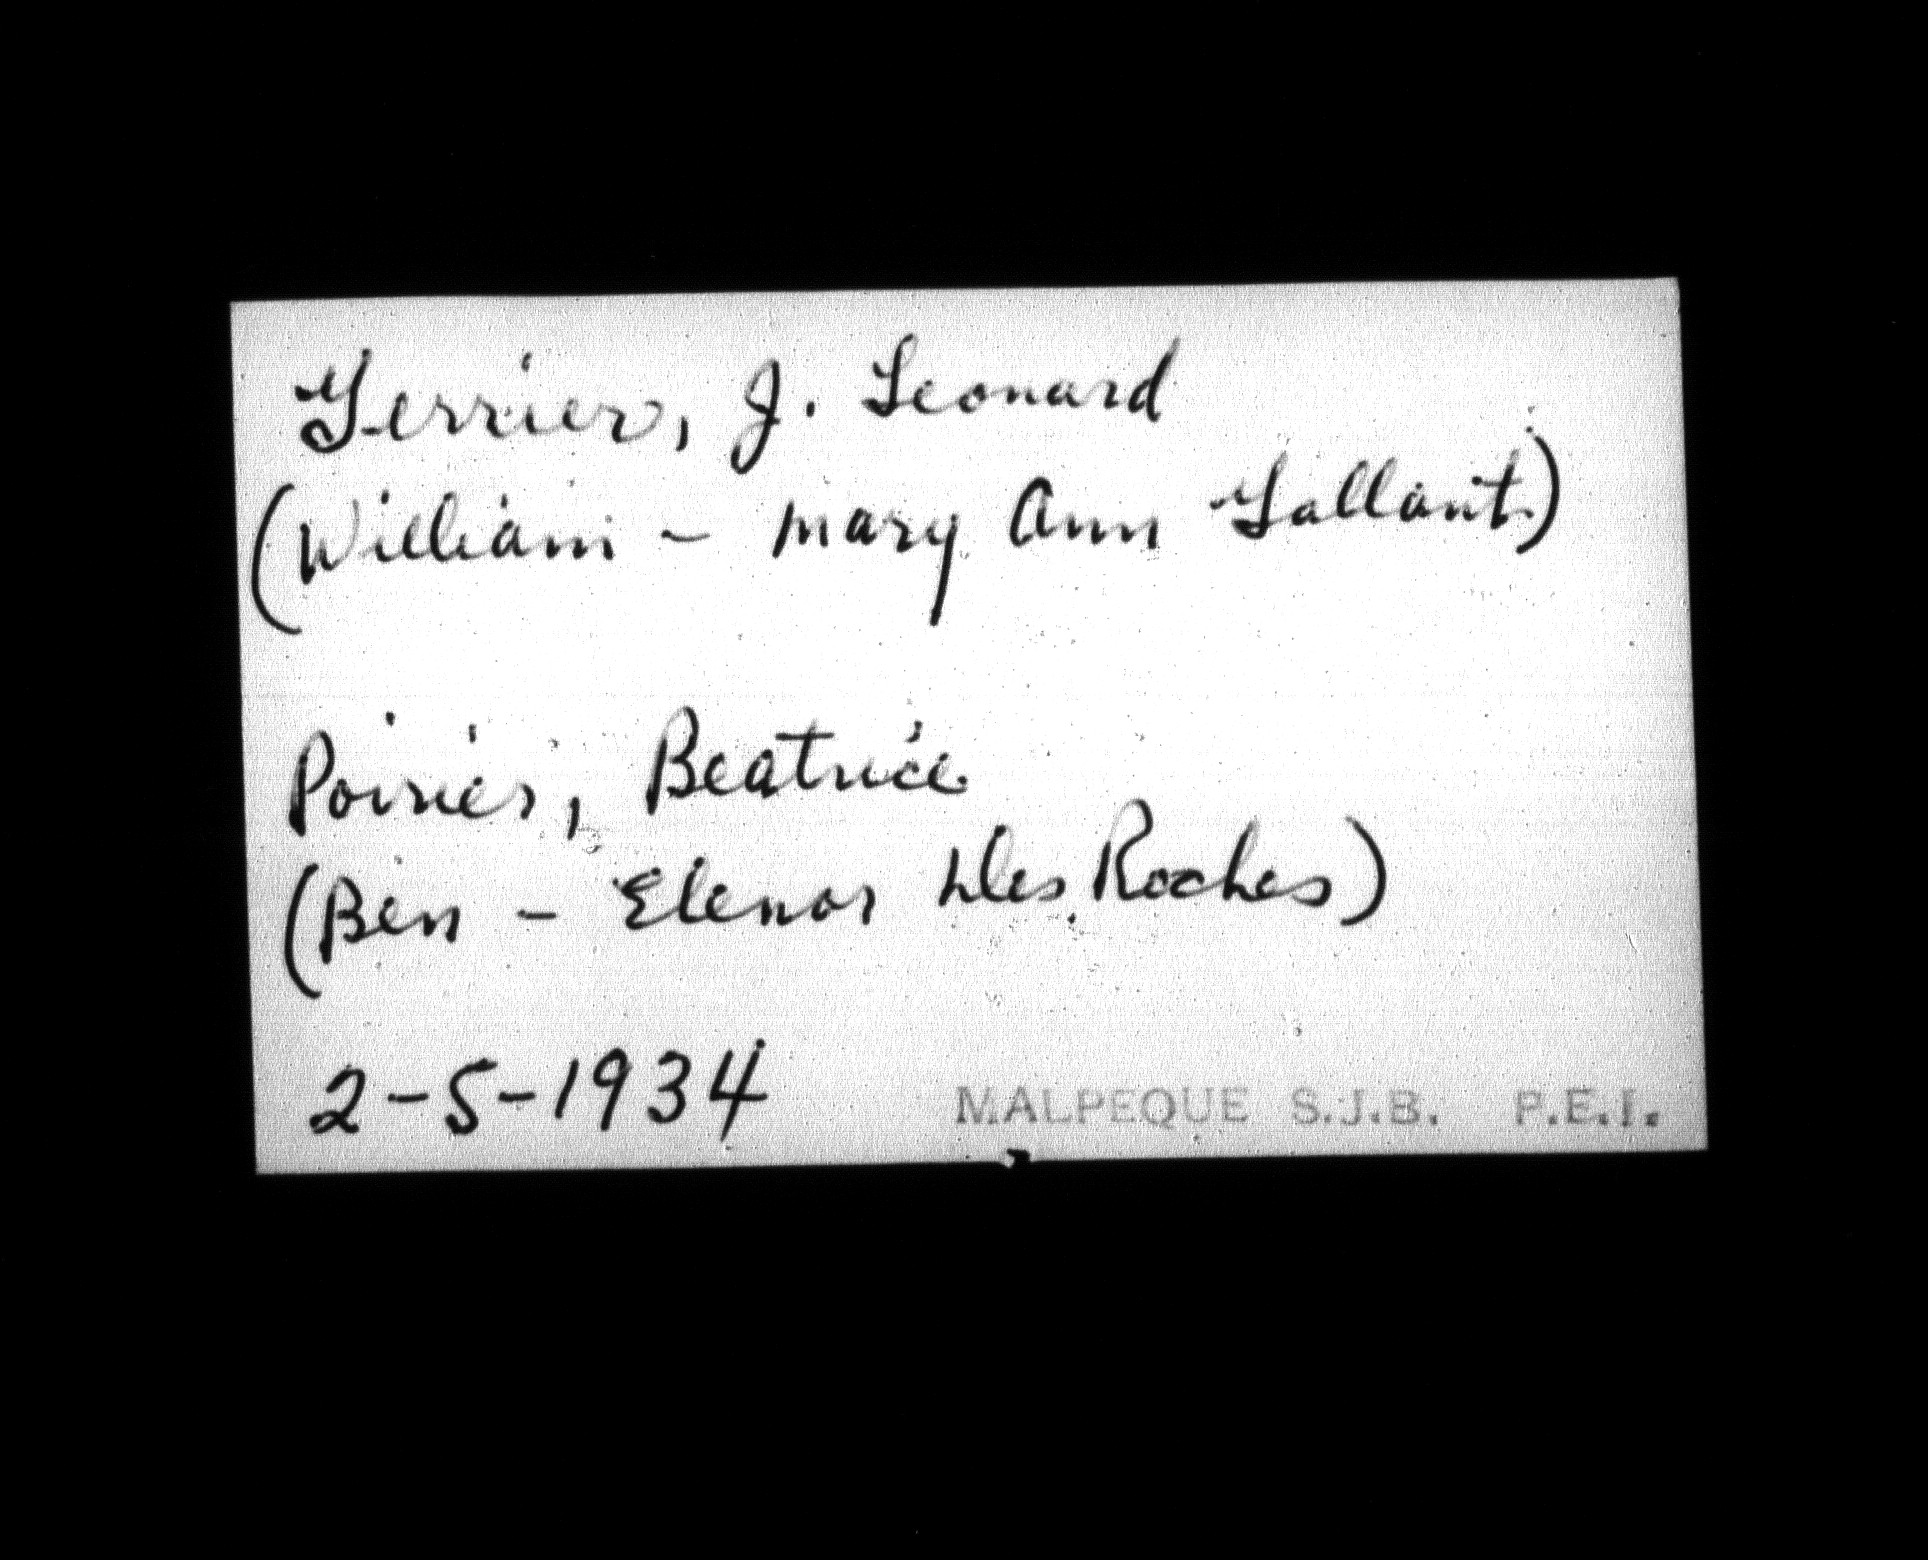 Gerrier, J. Leonard
(William - Mary Ann Gallant)
Poirier, Beatrice
(Ben - Elenor Des Roches)
2-5-1934
MALPEQUE S.J.B. P.E.I.